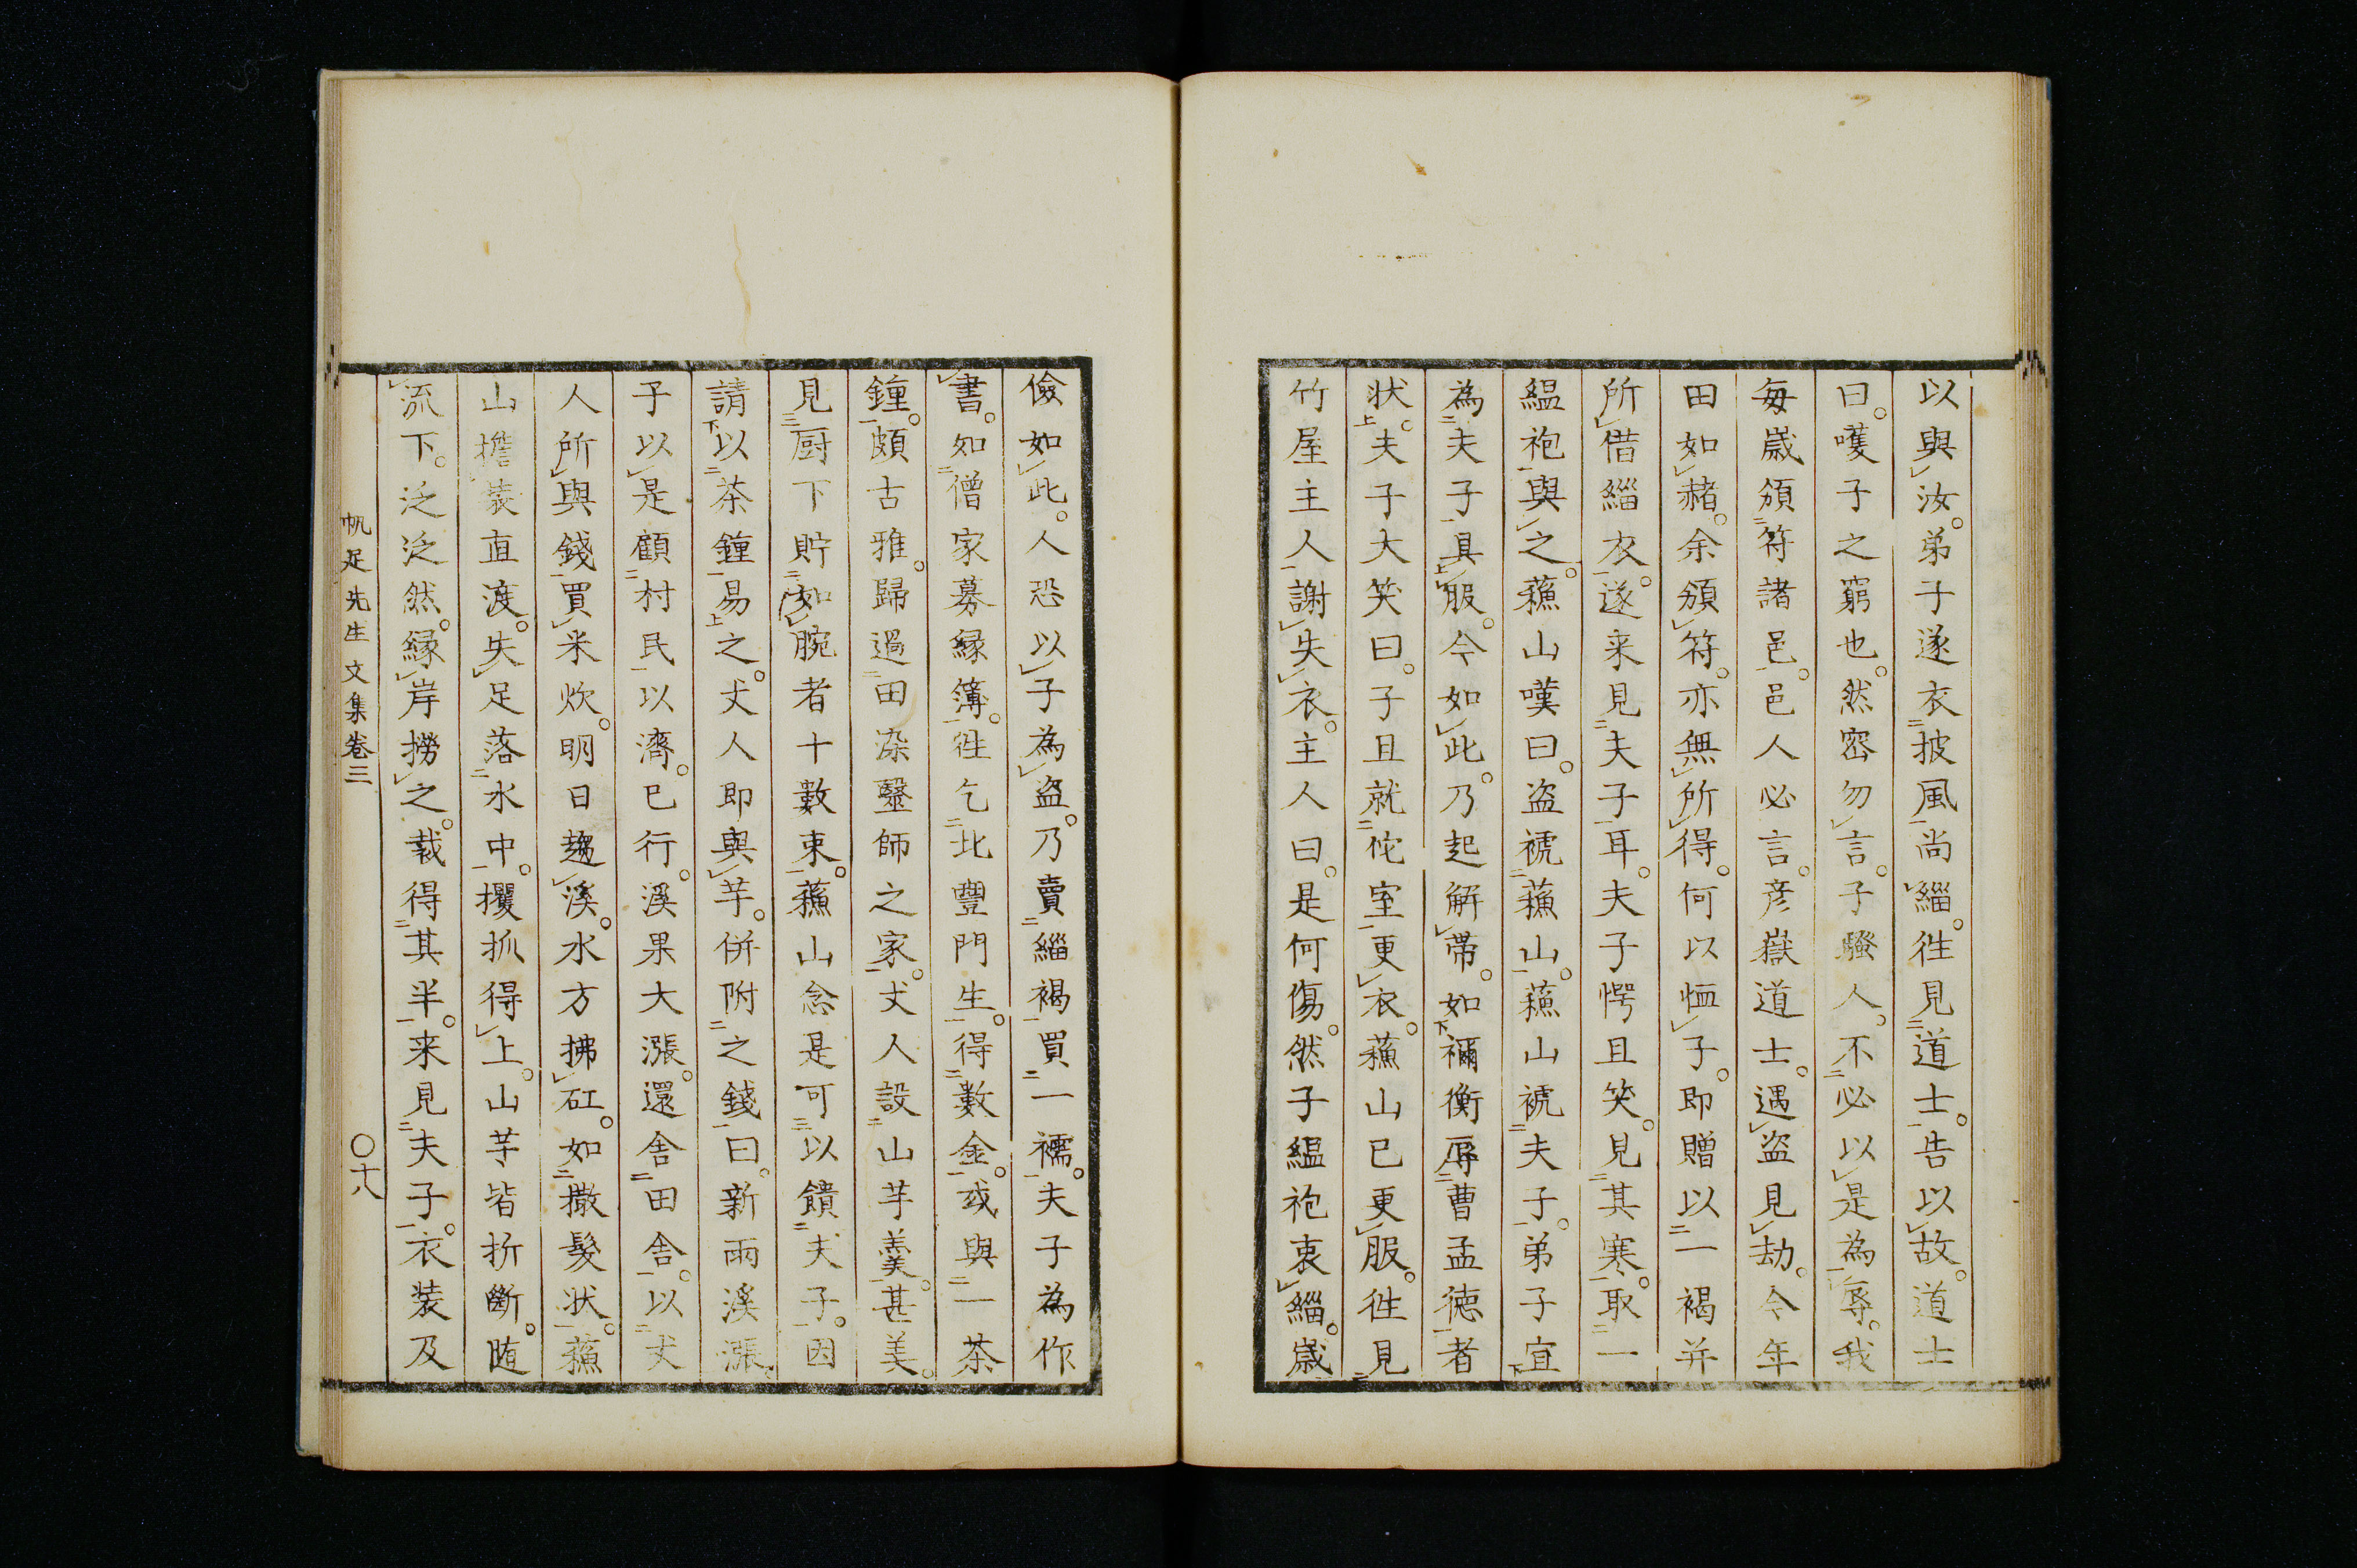 以與汝。弟子遂衣披風尚緇。徃見道士。告以故。道士
曰。嚄子之窮也。然密勿言。子騷人。不必以是為辱。我
每歳頒符諸邑。邑人必言。彦嶽道士。遇盗見劫。今年
田如赭。余頒符。亦無所得。何以恤子。即贈以一褐并
所借緇衣。遂来見夫子耳。夫子愕且笑。見其寒。取一
緼袍與之。蘓山嘆曰。盗褫蘓山。蘓山褫夫子。弟子宜
為夫子具服。今如此。乃起解帯。如禰衡辱曹孟徳者
状。夫子大笑曰。子且就佗室更衣。蘓山已更服。徃見
竹屋主人謝失衣。主人曰。是何傷。然子緼袍衷緇。歳
儉如此。人恐以子為盗。乃賣緇褐買一襦。夫子為作
書。如僧家募縁簿。徃乞北豐門生。得數金。或與一茶
鍾。頗古雅。歸過田染毉師之家。丈人設山芋羹。甚美。
見厨下貯如腕者十數束。蘓山念是可以饋夫子。因
請以茶鍾易之。丈人即與芋。併附之錢曰。新雨溪漲。
子以是顧村民以濟。已行。溪果大漲。還舎田舎。以丈
人所與錢買米炊。明日趨溪。水方拂矼。如撒髮状。蘓
山擔装直渡。失足落水中。攫抓得上。山芋皆折斷。随
流下。泛泛然。縁岸撈之。裁得其半。来見夫子。衣装及
帆足先生文集卷三
〇十八